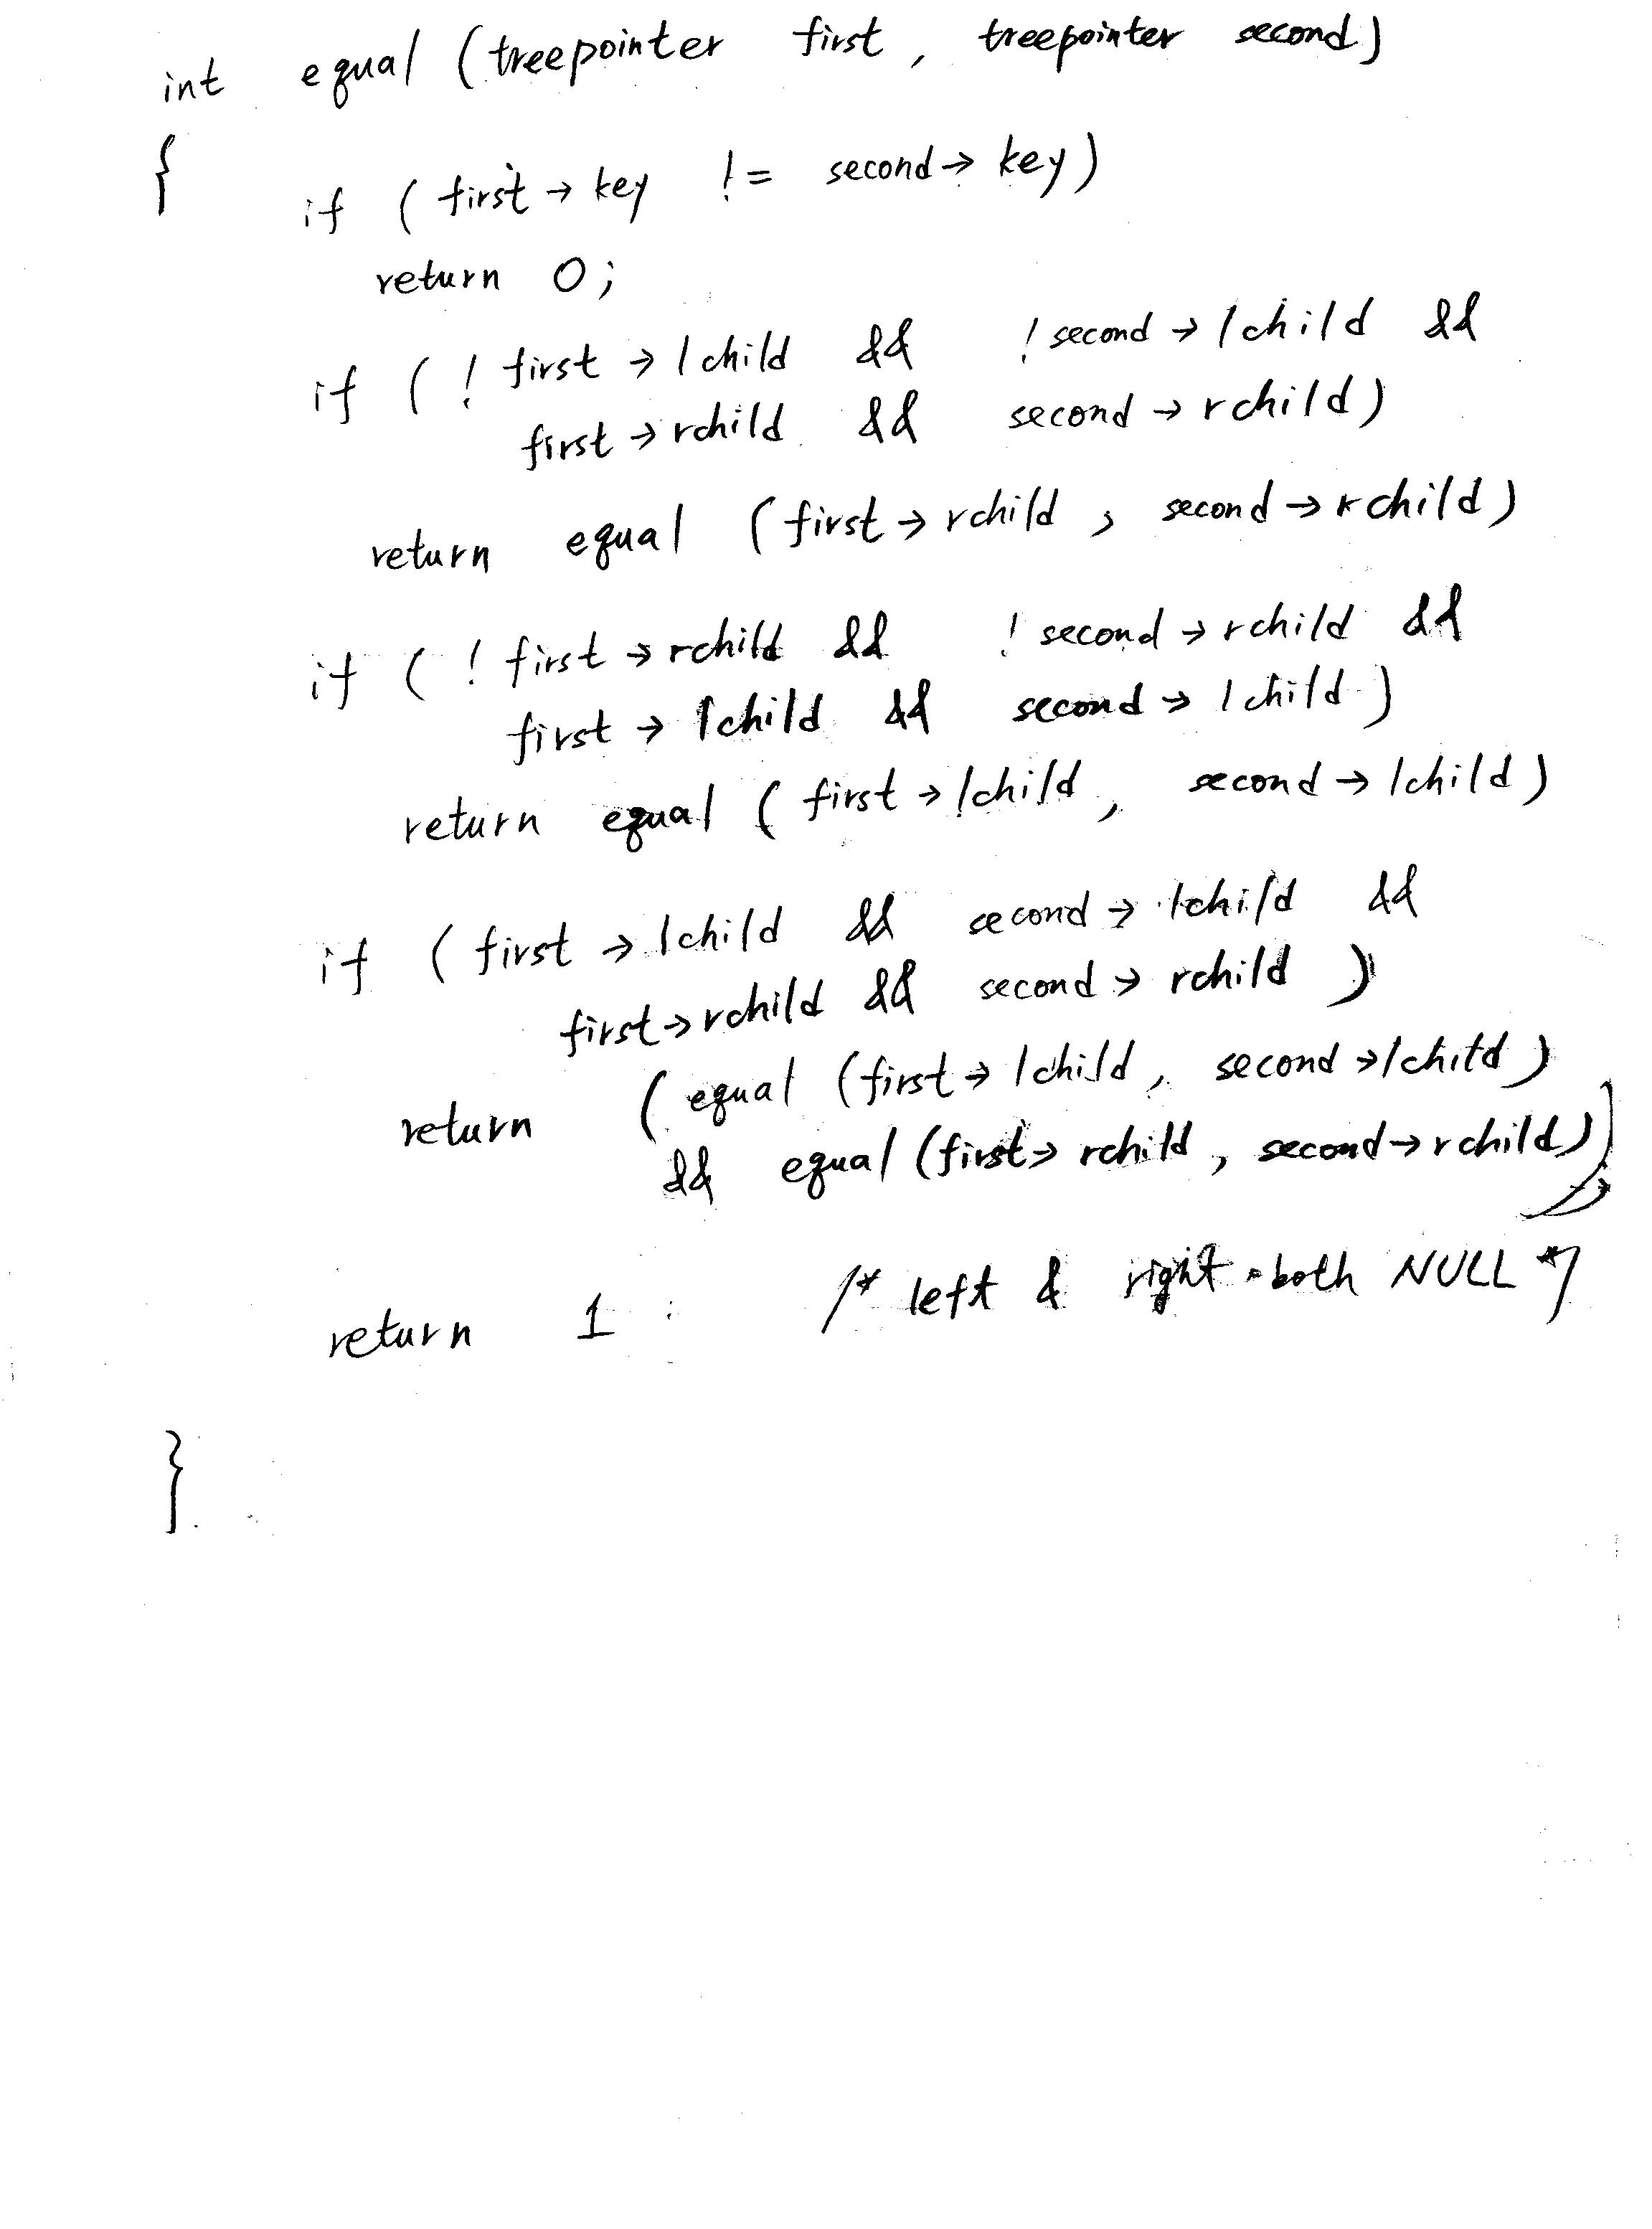 int equal (treepointer first, treepointer second)
{
if (first → key != second → key)
return 0;
if (! first → lchild && ! second → lchild &&
first → rchild && second → rchild)
return equal (first → rchild, second → rchild)
if (! first → rchild && ! second → rchild &&
first → lchild && second → lchild)
return equal (first → lchild, second → lchild)
if (first → lchild && second → lchild &&
first → rchild && second → rchild)
return (equal (first → lchild, second → lchild)
&& equal (first → rchild, second → rchild));
return 1 : /* left & right both NULL */
}